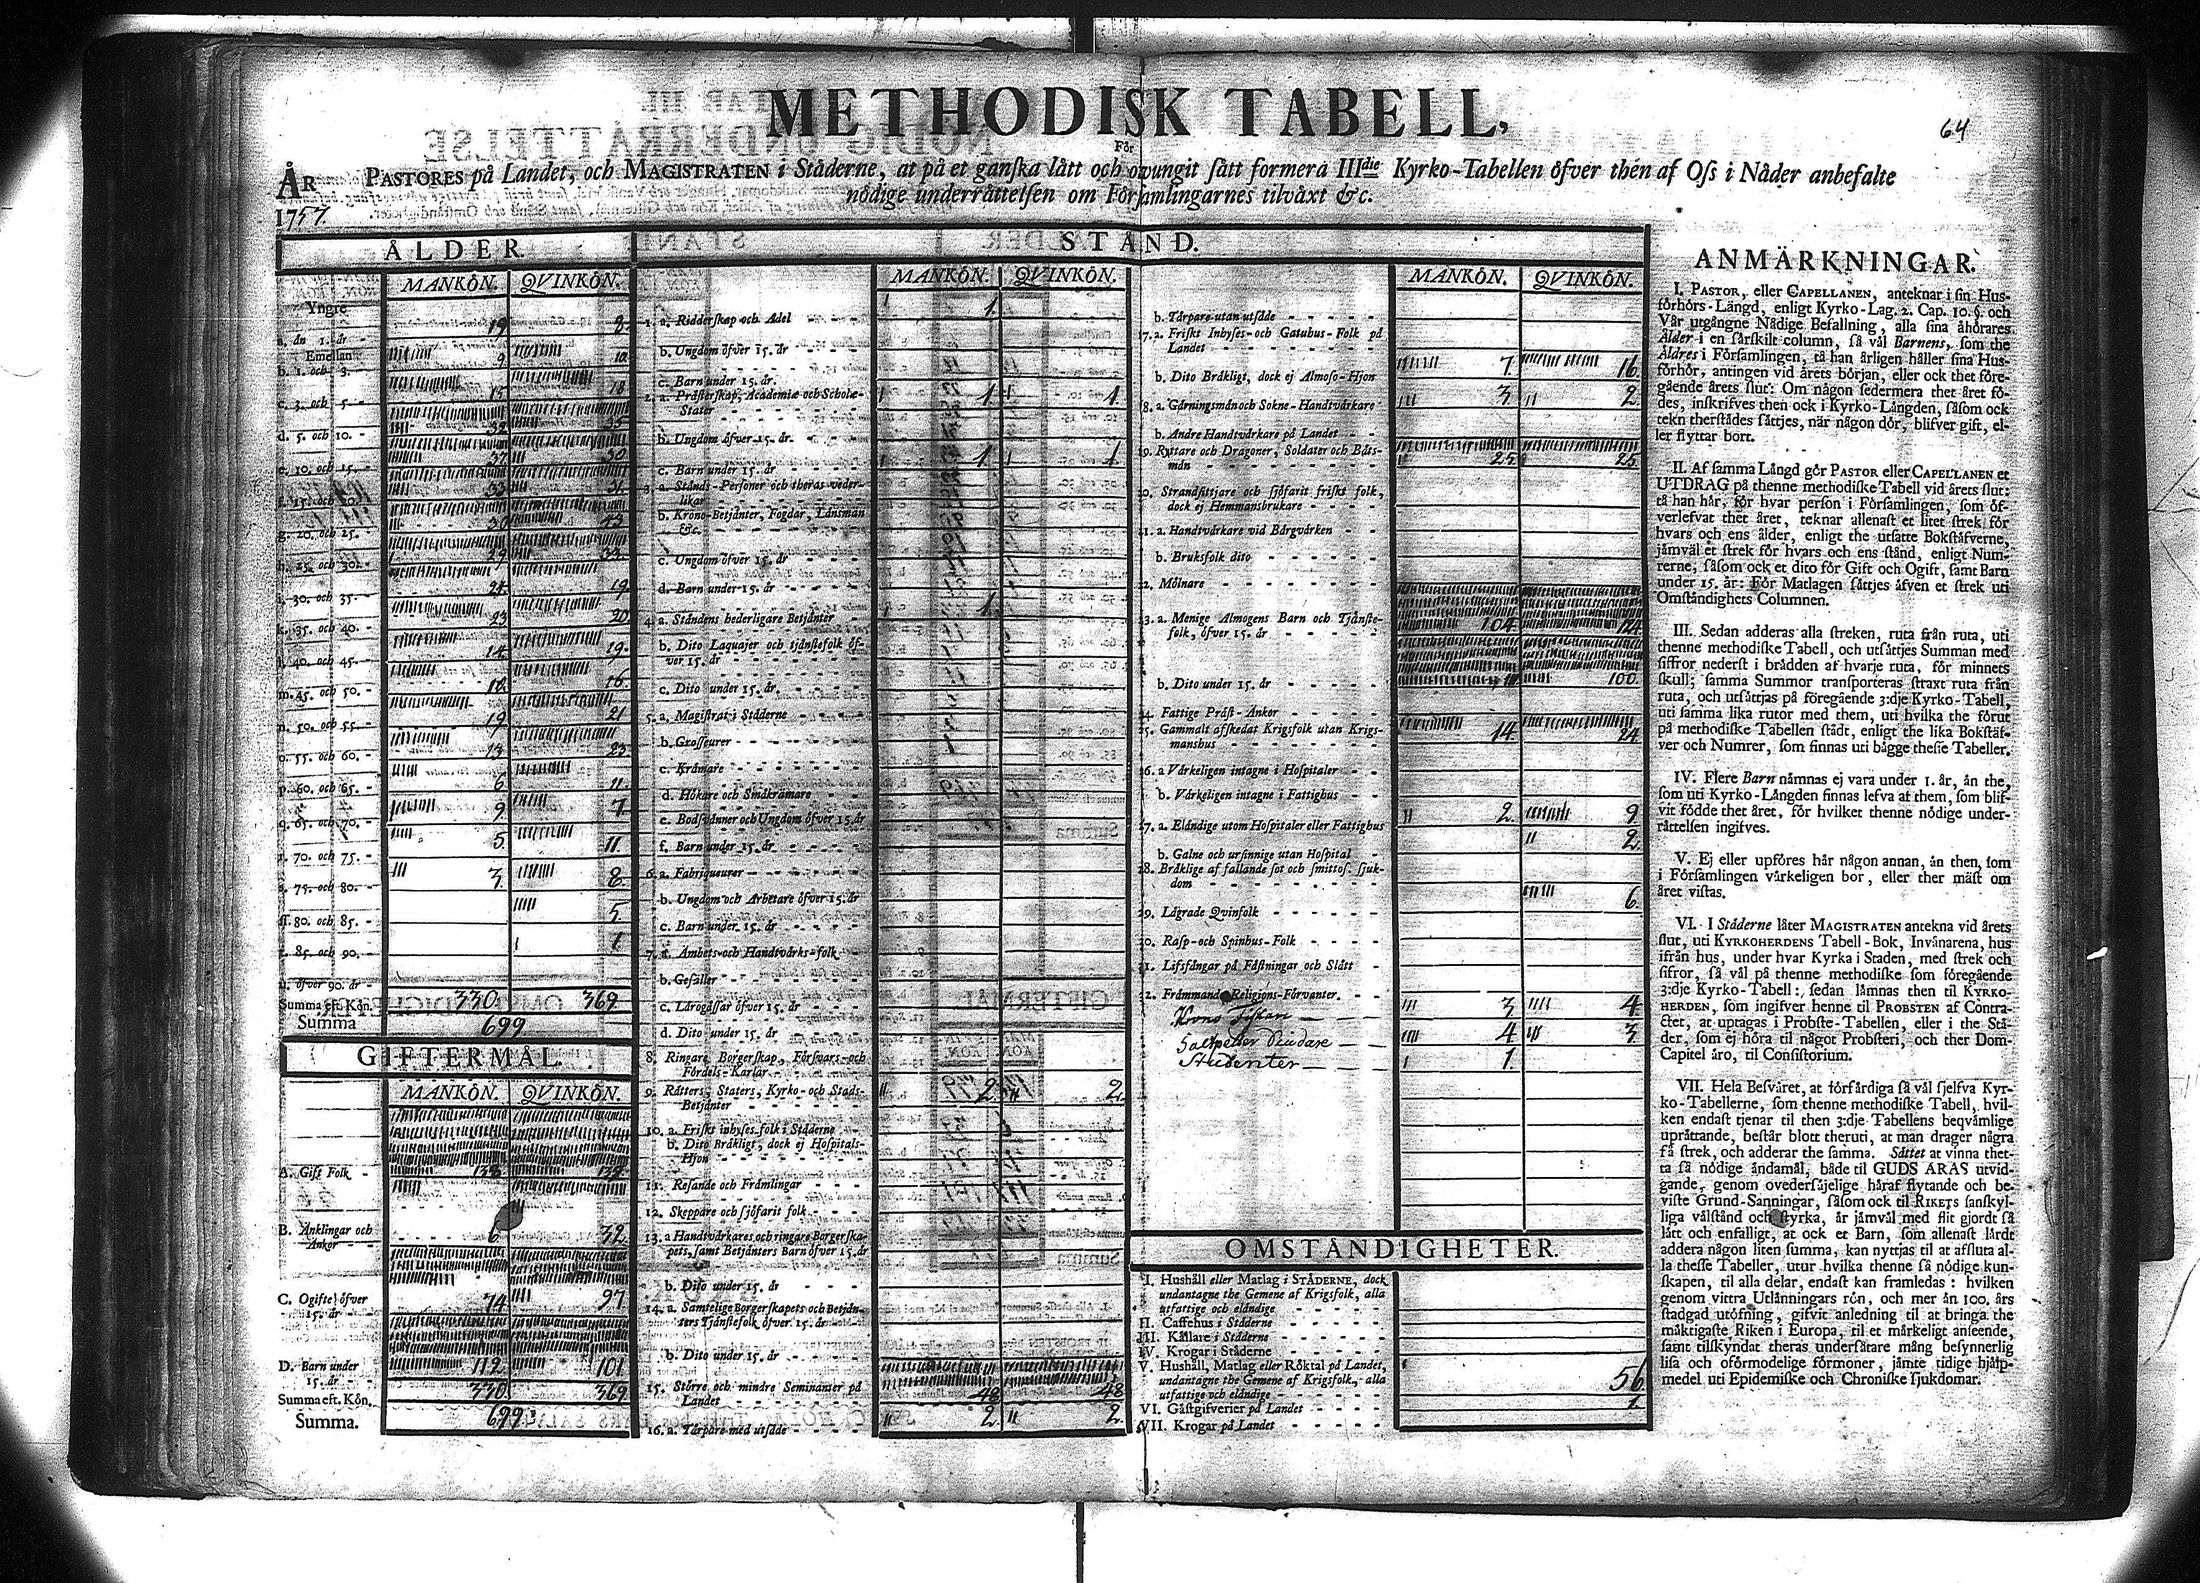 METHODISK TABELL,
64
För
PASTORES på Landet, och MAGISTRATEN i Städerne, at på et ganska lätt och otvungit sätt formera IIIdie Kyrko-Tabellen öfver then af Oss i Nåder anbefalte
nödige underrättelsen om Församlingarnes tilväxt &c.
ÅR
1757.
ÅLDER.
MANKÖN. QVINKÖN.
Yngre
a. än 1. år - 19 8.
Emellan
b. 1. och 3. - 9 10
c. 3. och 5. - 15 18
d. 5. och 10. - 32 35
e. 10. och 15. - 37 30
f. 15. och 20. 33 31.
g. 20. och 25. 30 43
h. 25. och 30. 29 33
i. 30. och 35. - 24. 19
k. 35. och 40. - 23 20
l. 40. och 45. - 14. 19.
m. 45. och 50. - 16.
n. 50. och 55. - 19. 21
o. 55. och 60. - 13 23
p. 60. och 65. - 6 11.
q. 65. och 70. - 9 7
r. 70. och 75. - 5. 11
s. 75. och 80. - 3. 8.
ss. 80. och 85. - 5.
t. 85. och 90. - 1.
u. öfver 90. år
Summa eft. Kön. 330. 369
Summa 699
GIFTERMÅL.
MANKÖN. QVINKÖN.
A. Gift Folk - 138. 139.
B. Änklingar och
Änkor 6 32
C. Ogifte öfver
15. år - 74 97
D. Barn under
15. år - 112 101
Summa eft. Kön. 330. 369
Summa. 699.
STÅND.
MANKÖN. QVINKÖN.
1. a. Ridderskap och Adel 1.
b. Ungdom öfver 15. år
c. Barn under 15. år.
2. a. Prästerskap, Academiæ och Scholæ-
Stater 1 1
b. Ungdom öfver 15. år.
c. Barn under 15. år 1 1
3. a. Stånds-Personer och theras veder-
likar
b. Krono-Betjänter, Fogdar, Länsmän
&c.
c. Ungdom öfver 15. år
d. Barn under 15. år
4. a. Ståndens hederligare Betjänter 1.
b. Dito Laquajer och tjänstefolk öf-
ver 15. år
c. Dito under 15. år.
5. a. Magistrat i Städerne
b. Grosseurer
c. Krämare
d. Hökare och Småkrämare
e. Bodsvänner och Ungdom öfver 15. år
f. Barn under 15. år
6. a. Fabriqueurer
b. Ungdom och Arbetare öfver 15. år
c. Barn under 15. år
7. a. Ämbets- och Handtvärks-folk
b. Gesäller
c. Lärogåssar öfver 15. år
d. Dito under 15. år
8. Ringare Borgerskap, Försvars- och
Fördels-Karlar
9. Rätters, Staters, Kyrko- och Stads-
Betjänter 2. 2.
10. a. Friskt inhyses folk i Städerne
b. Dito Bräkligt, dock ej Hospitals-
Hjon
11. Resande och Främlingar
12. Skeppare och sjöfarit folk
13. a Handtvärkares och ringare Borgerska-
pets, samt Betjänters Barn öfver 15. år
b. Dito under 15. år
14. a. Samtelige Borgerskapets och Betjän-
ters Tjänstefolk öfver 15. år
b. Dito under 15. år
15. Större och mindre Hemmanter på
Landet 48 48
16. a. Torpare med utsäde 2. 2.
MANKÖN. QVINKÖN.
b. Torpare utan utsäde
17. a. Friskt Inhyses- och Gatuhus-Folk på
Landet 7 16
b. Dito Bräkligt, dock ej Almoso-Hjon 3. 2.
18. a. Gärningsmän och Sokne-Handtvärkare
b. Andre Handtvärkare på Landet
19. Ryttare och Dragoner, Soldater och Båts-
män 25. 25
20. Strandsittjare och sjöfarit friskt folk,
dock ej Hemmansbrukare
21. a. Handtvärkare vid Bärgvärken
b. Bruksfolk dito
22. Mölnare
23. a. Menige Almogens Barn och Tjänste-
folk, öfver 15. år 104. 124
b. Dito under 15. år 100
24. Fattige Präst-Änkor
25. Gammalt afskedat Krigsfolk utan Krigs-
manshus 14. 24
26. a Värkeligen intagne i Hospitaler
b. Värkeligen intagne i Fattighus
27. a. Eländige utom Hospitaler eller Fattighus 2. 9
b. Galne och ursinnige utan Hospital 2.
28. Bräklige af fallande sot och smittos. sjuk-
dom 6.
29. Lägrade Qvinfolk
30. Rasp- och Spinhus-Folk
31. Lifsfångar på Fästningar och Slått
32. Främmande Religions-Förvanter. 3 4
Krono Fiskare
Saltpetter Siudare 4 3
Studenter 1.
OMSTÄNDIGHETER.
I. Hushåll eller Matlag i STÄDERNE, dock
undantagne the Gemene af Krigsfolk, alla
utfattige och eländige
II. Caffehus i Städerne
III. Källare i Städerne
IV. Krogar i Städerne
V. Hushåll, Matlag eller Röktal på Landet,
undantagne the Gemene af Krigsfolk, alla
utfattige och eländige 56.
VI. Gästgifverier på Landet 1.
VII. Krogar på Landet
ANMÄRKNINGAR.
I. PASTOR, eller CAPELLANEN, anteknar i sin Hus-
förhörs-Längd, enligt Kyrko-Lag. 2. Cap. 10. §. och
Vår utgångne Nådige Befallning, alla sina åhörares
Ålder i en särskilt column, så väl Barnens, som the
Äldres i Församlingen, tå han årligen håller sina Hus-
förhör, antingen vid årets början, eller ock thet före-
gående årets slut: Om någon sedermera thet året fö-
des, inskrifves then ock i Kyrko-Längden, såsom ock
tekn therstädes sättjes, när någon dör, blifver gift, el-
ler flyttar bort.
II. Af samma Längd gör PASTOR eller CAPELLANEN et
UTDRAG på thenne methodiske Tabell vid årets slut:
tå han här, för hvar person i Församlingen, som öf-
verlefvat thet året, teknar allenast et litet strek för
hvars och ens ålder, enligt the utsatte Bokstäfverne,
jämväl et strek för hvars och ens stånd, enligt Num-
rerne; såsom ock et dito för Gift och Ogift, samt Barn
under 15. år: För Matlagen sättjes äfven et strek uti
Omständighets Columnen.
III. Sedan adderas alla streken, ruta från ruta, uti
thenne methodiske Tabell, och utsättjes Summan med
siffror nederst i brädden af hvarje ruta, för minnets
skull; samma Summor transporteras straxt ruta från
ruta, och utsättjas på föregående 3:dje Kyrko-Tabell,
uti samma lika rutor med them, uti hvilka the förut
på methodiske Tabellen städt, enligt the lika Bokstäf-
ver och Numrer, som finnas uti bägge thesse Tabeller.
IV. Flere Barn nämnas ej vara under 1. år, än the,
som uti Kyrko-Längden finnas lefva af them, som blif-
vit födde thet året, för hvilket thenne nödige under-
rättelsen ingifves.
V. Ej eller upföres här någon annan, än then, som
i Församlingen värkeligen bor, eller ther mäst om
året vistas.
VI. I Städerne låter MAGISTRATEN antekna vid årets
slut, uti KYRKOHERDENS Tabell-Bok, Invånarena, hus
ifrån hus, under hvar Kyrka i Staden, med strek och
sifror, så väl på thenne methodiske som föregående
3:dje Kyrko-Tabell:, sedan lämnas then til KYRKO-
HERDEN, som ingifver henne til PROBSTEN af Contra-
ctet, at uptagas i Probste-Tabellen, eller i the Stä-
der, som ej höra til något Probsteri, och ther Dom-
Capitel äro, til Consistorium.
VII. Hela Besväret, at förfärdiga så väl sjelfva Kyr-
ko-Tabellerne, som thenne methodiske Tabell, hvil-
ken endast tjenar til then 3:dje Tabellens beqvämlige
uprättande, består blott theruti, at man drager några
få strek, och adderar the samma. Sättet at vinna thet-
ta så nödige ändamål, både til GUDS ÄRAS utvid-
gande, genom ovedersäjelige häraf flytande och be-
viste Grund-Sanningar, såsom ock til RIKETS sanskyl-
liga välstånd och styrka, är jämväl med flit gjordt så
lätt och enfalligt, at ock et Barn, som allenast lärdt
addera någon liten summa, kan nyttjas til at afsluta al-
la thesse Tabeller, utur hvilka thenne så nödige kun-
skapen, til alla delar, endast kan framledas: hvilken
genom vittra Utlänningars rön, och mer än 100. års
stadgad utöfning, gifvit anledning til at bringa the
mäktigaste Riken i Europa, til et märkeligt anseende,
samt tilskyndat theras undersåtare mång besynnerlig
lisa och oförmodelige förmoner, jämte tidige hjälp-
medel uti Epidemiske och Chroniske sjukdomar.